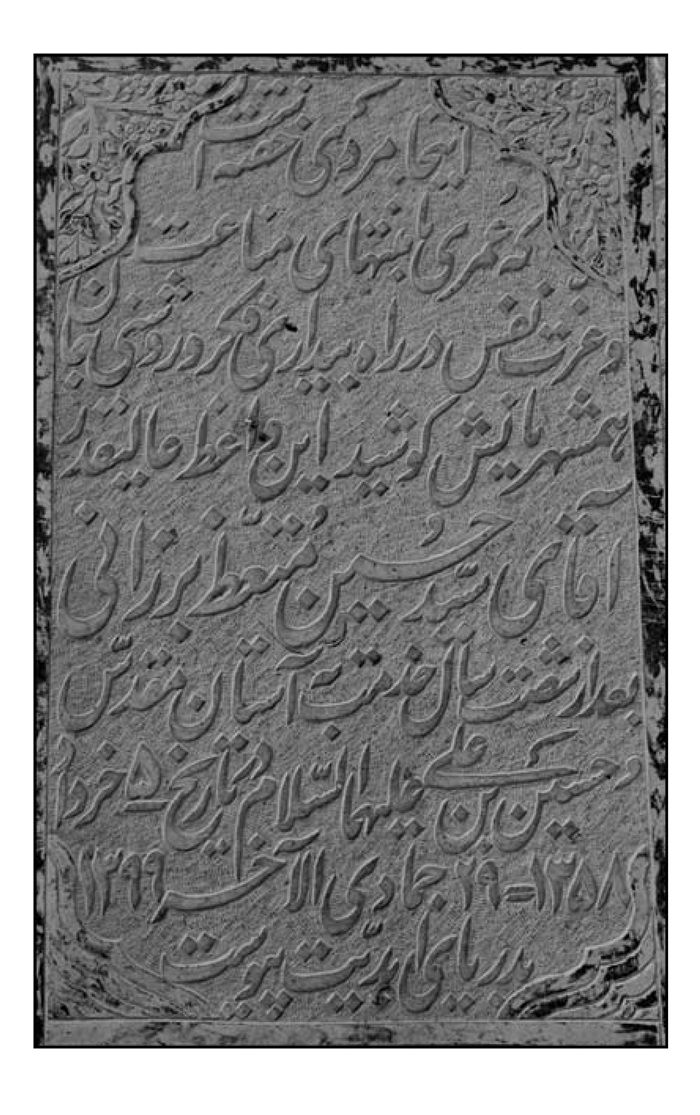 اینجا مردی خفته است
که عُمری با منتهای مناعت
و عزّت نفس در راه بیداری فکر و روشنی جان
همشهریانش کوشید این واعظ عالیقدر
آقای سیّد حُسین مُتّعظ برزانی
بعد از شصت سال خدمت به آستان مقدّس
حسین بن علی علیهما السّلام در تاریخ ۵ خرداد
۱۳۵۸ = ۲۹ جمادی الآخر ۱۳۹۹
بدریای ابدیّت پیوست